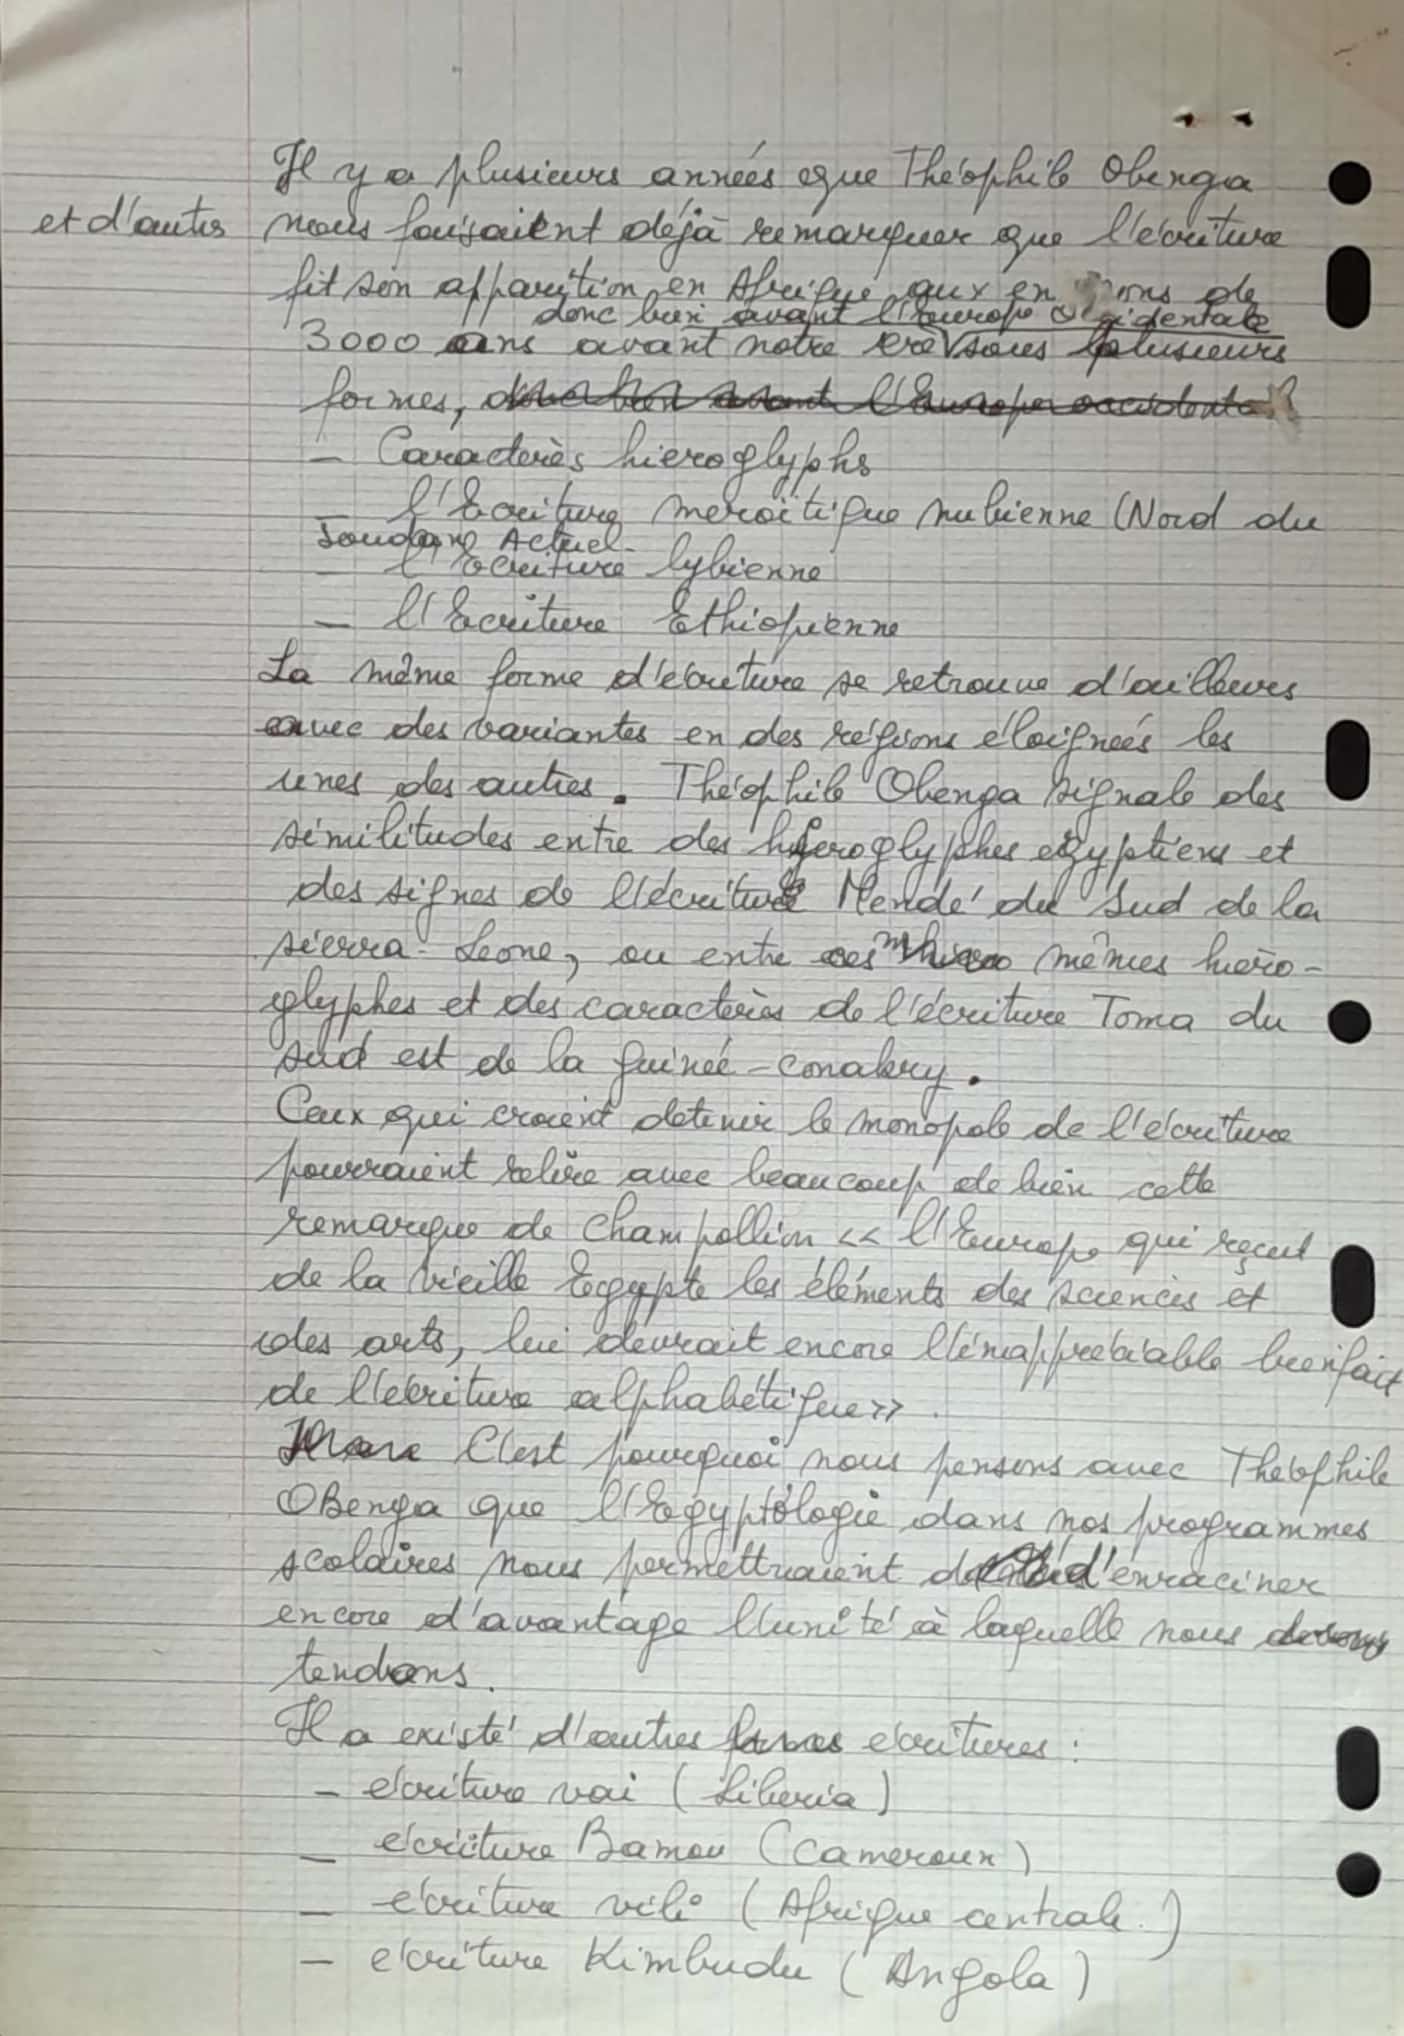 Il y a plusieurs années que Théophile Obenga
et d'autres nous faisaient déjà remarquer que l'écriture
fit son apparition en Afrique aux environs de
donc bien avant l'Europe occidentale
3000 ans avant notre ère sous plusieurs
formes, donc bien avant l'Europe occidentale
- Caractères hieroglyphs
- l'Ecriture meroïtique nubienne (Nord du
Soudang Actuel.
- l'Ecriture lybienne
- l'Ecriture Ethiopienne
La même forme d'écriture se retrouve d'ailleurs
avec des variantes en des régions éloignées les
unes des autres. Théophile Obenga signale des
similitudes entre des hieroglyphes egyptiens et
des signes de l'écriture Mendé du Sud de la
sierra-Leone, ou entre ces mêmes hiero-
glyphes et des caractères de l'écriture Toma du
sud est de la guinée-conakry.
Ceux qui croient detenir le monopole de l'écriture
pourraient relire avec beaucoup de bien cette
remarque de Champollion << l'Europe qui reçut
de la vieille Egypte les éléments des sciences et
des arts, lui devrait encore l'inappréciable bienfait
de l'écriture alphabétique >>.
C'est pourquoi nous pensons avec Théophile
OBenga que l'Egyptologie dans nos programmes
scolaires nous permettraient d'enraciner
encore d'avantage l'unité à laquelle nous
tendons.
Il a existé d'autres formes ecritures :
- écriture vai (Liberia)
- écriture Bamou (Cameroun)
- écriture vili (Afrique centrale.)
- écriture Kimbudu (Angola)